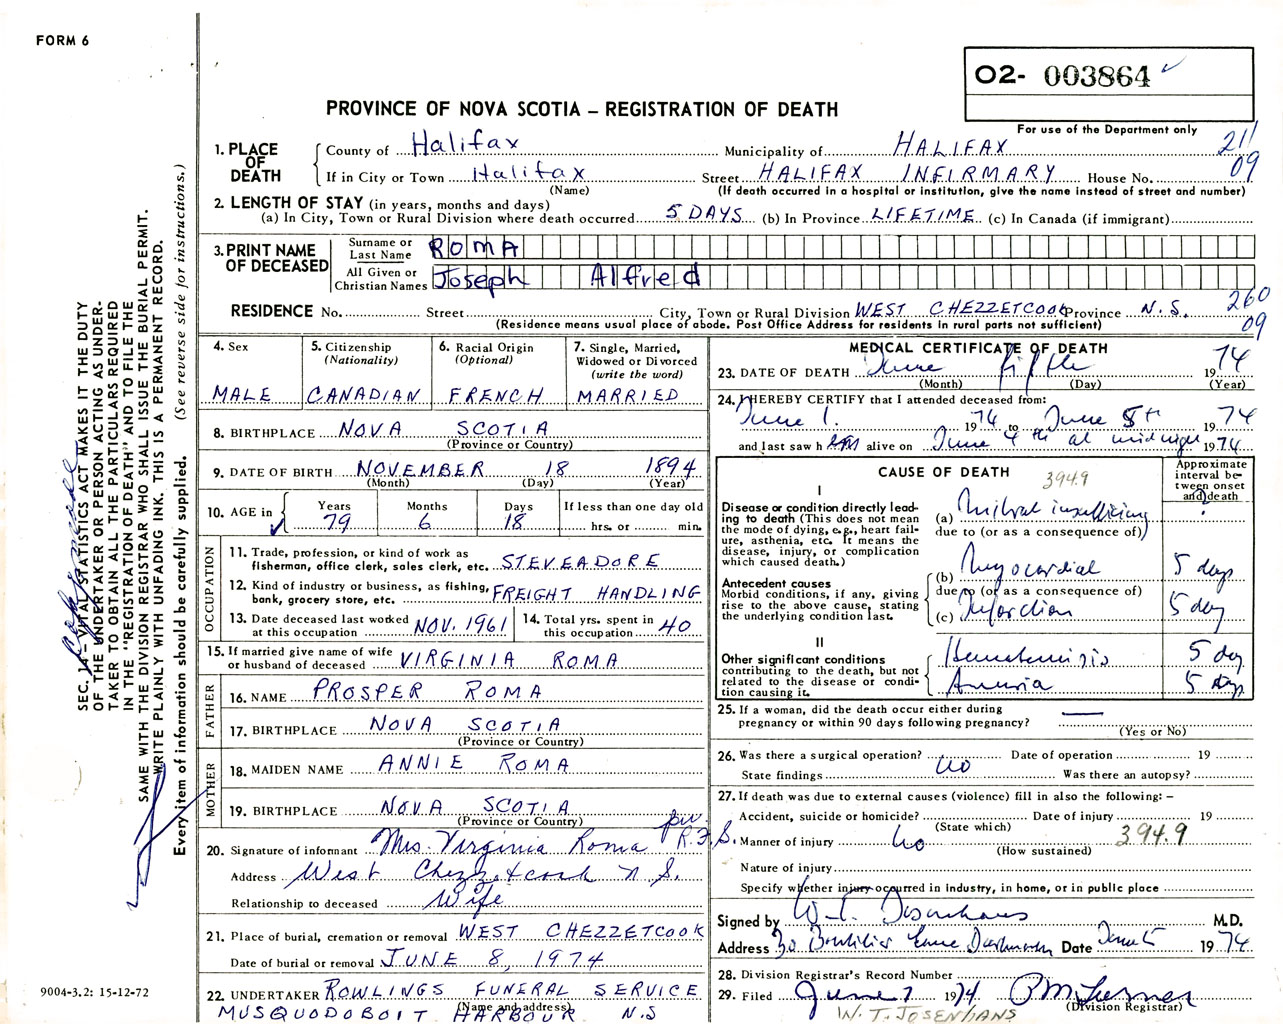 FORM 6
02- 003864
PROVINCE OF NOVA SCOTIA – REGISTRATION OF DEATH
For use of the Department only
1. PLACE OF DEATH
County of Halifax Municipality of HALIFAX 211
If in City or Town Halifax Street HALIFAX INFIRMARY House No. 09
(Name) (If death occurred in a hospital or institution, give the name instead of street and number)
2. LENGTH OF STAY (in years, months and days)
(a) In City, Town or Rural Division where death occurred 5 DAYS (b) In Province LIFETIME (c) In Canada (if immigrant)
3. PRINT NAME OF DECEASED
Surname or Last Name ROMA
All Given or Christian Names Joseph Alfred
RESIDENCE No. Street City, Town or Rural Division WEST CHEZZETCOOK Province N.S. 260
(Residence means usual place of abode. Post Office Address for residents in rural parts not sufficient) 09
4. Sex
MALE
5. Citizenship
(Nationality)
CANADIAN
6. Racial Origin
(Optional)
FRENCH
7. Single, Married,
Widowed or Divorced
(write the word)
MARRIED
8. BIRTHPLACE NOVA SCOTIA
(Province or Country)
9. DATE OF BIRTH NOVEMBER 18 1894
(Month) (Day) (Year)
10. AGE in
Years Months Days If less than one day old
79 6 18 hrs. or min.
OCCUPATION
11. Trade, profession, or kind of work as
fisherman, office clerk, sales clerk, etc. STEVEADORE
12. Kind of industry or business, as fishing,
bank, grocery store, etc. FREIGHT HANDLING
13. Date deceased last worked
at this occupation NOV. 1961
14. Total yrs. spent in
this occupation 40
15. If married give name of wife
or husband of deceased VIRGINIA ROMA
FATHER
16. NAME PROSPER ROMA
17. BIRTHPLACE NOVA SCOTIA
(Province or Country)
MOTHER
18. MAIDEN NAME ANNIE ROMA
19. BIRTHPLACE NOVA SCOTIA
(Province or Country)
per R.F.S.
20. Signature of informant Mrs. Virginia Roma
Address West Chezzetcook N.S.
Relationship to deceased Wife
21. Place of burial, cremation or removal WEST CHEZZETCOOK
Date of burial or removal JUNE 8, 1974
22. UNDERTAKER ROWLINGS FUNERAL SERVICE
(Name and address)
MUSQUODOBOIT HARBOUR N.S
MEDICAL CERTIFICATE OF DEATH
23. DATE OF DEATH June fifth 1974
(Month) (Day) (Year)
24. I HEREBY CERTIFY that I attended deceased from:
June 1. 1974 to June 5th 1974
and last saw h im alive on June 4th at midnight 1974
CAUSE OF DEATH 394.9
Approximate interval between onset and death
I
Disease or condition directly lead-
ing to death (This does not mean
the mode of dying, e.g., heart fail-
ure, asthenia, etc. It means the
disease, injury, or complication
which caused death.)
(a) Mitral insufficiency ?
due to (or as a consequence of)
Antecedent causes
Morbid conditions, if any, giving
rise to the above cause, stating
the underlying condition last.
(b) Myocardial 5 days
due to (or as a consequence of)
(c) Infarction 5 day
II
Other significant conditions
contributing to the death, but not
related to the disease or condi-
tion causing it.
Hematemisis 5 day
Anuria 5 days
25. If a woman, did the death occur either during
pregnancy or within 90 days following pregnancy? —
(Yes or No)
26. Was there a surgical operation? no Date of operation 19
State findings Was there an autopsy?
27. If death was due to external causes (violence) fill in also the following: –
Accident, suicide or homicide? Date of injury 19
(State which)
Manner of injury no 394.9
(How sustained)
Nature of injury
Specify whether injury occurred in industry, in home, or in public place
Signed by W.T. Josenhans M.D.
Address 30 Boutilier Lane Dartmouth Date June 5 1974
28. Division Registrar's Record Number
29. Filed June 7 1974
(Division Registrar)
W. T. JOSENHANS
SEC. 14 – VITAL STATISTICS ACT MAKES IT THE DUTY
OF THE UNDERTAKER OR PERSON ACTING AS UNDER-
TAKER TO OBTAIN ALL THE PARTICULARS REQUIRED
IN THE "REGISTRATION OF DEATH" AND TO FILE THE
SAME WITH THE DIVISION REGISTRAR WHO SHALL ISSUE THE BURIAL PERMIT.
WRITE PLAINLY WITH UNFADING INK. THIS IS A PERMANENT RECORD.
Every item of information should be carefully supplied. (See reverse side for instructions.)
9004-3.2: 15-12-72